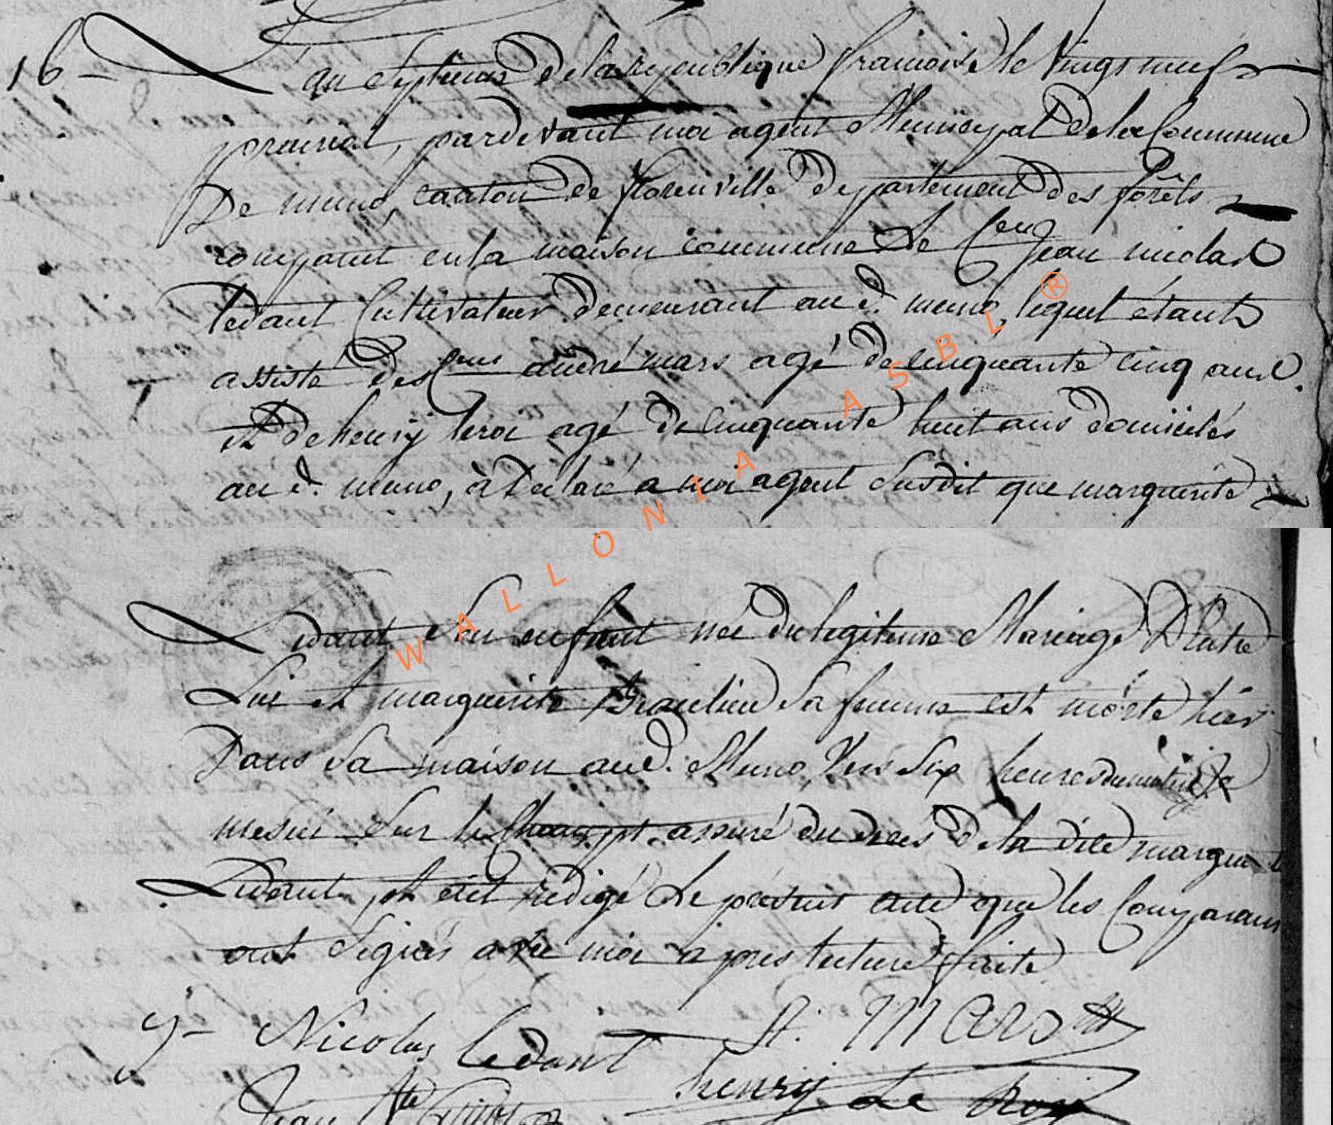 16 -
L'an septieme de la republique francoise le vingt neuf
prairial, pardevant moi agent Municipal de la Commune
De muno, canton de florenville departement des forêts
comparut en la maison commune Le Cen jean nicolas
ledant Cultivateur demeurant au d. muno, lequel étant
assisté des Cens andré mars agé de cinquante cinq ans.
et de henry leroi agé de cinquante huit ans domiciliés
au d. muno, à declaré a moi agent susdit que marguerite
Ledant son enfant née du legitime Mariage D'entre
Lui et marguerite Beaulieu sa femme est morte hier
Dans sa maison au d. Muno, vers six heures du matin, je
me suis sur le Champt assuré du deces de la dite marguerite
Ledant, et ait rédigé Le présent acte que les Comparans
ont signés avec moi apres lecture faite
jn Nicolas Ledant A: MARS
henry Le Roy
Jean
WALLONIA ASBL ®